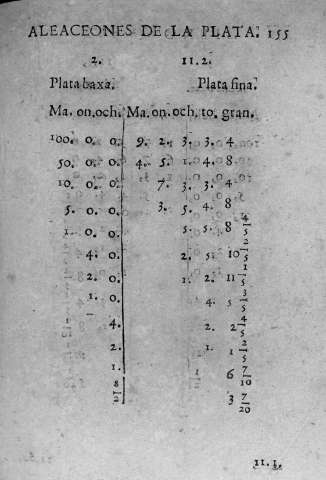 ALEACEONES DE LA PLATA. 155
2. 11.2.
Plata baxa. Plata fina.
Ma. on. och. Ma. on. och. to. gran.
100. 0. 0. 9. 2. 3. 3. 4
50. 0. 0. 4. 5. 1. 4. 8
10. 0. 0. 7. 3. 3. 4
5. 0. 0. 3. 5. 4. 8
1. 0. 0. 5. 5. 8 4/5
4. 0. 2. 5. 10 2/5
2. 0. 1. 2. 11 1/5
1. 0. 4. 5 3/5
4. 2. 2 4/5
2. 1. 1
1. 6 7/10
8/2 3 7/20
11. 1.